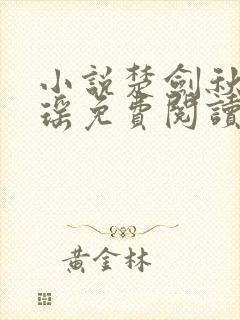 小說楚劍秋
瑶免費閱讀
黃金林